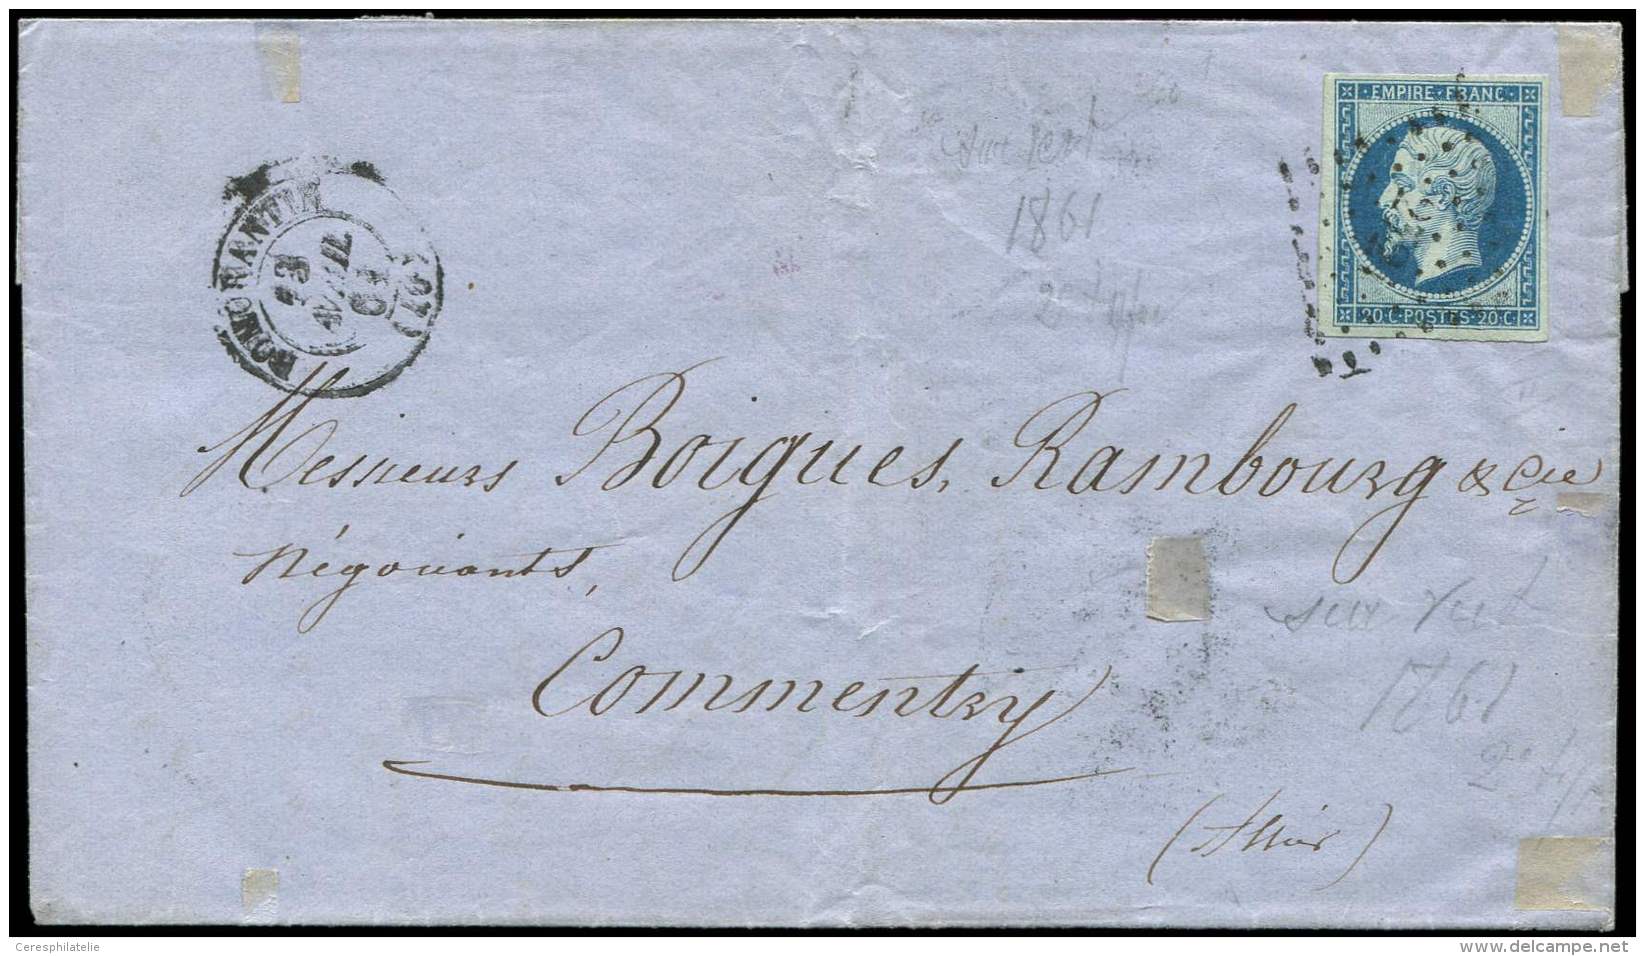 EMPIRE·FRANC·
20·C·POSTES·20·C·
ROMORANTIN
23
AVRIL
61
(40)
sur vert
1861
2e type
Messieurs Boigues, Rambourg & Cie
Négociants,
Commentry
(Allier)
sur vert
1861
2e typ
II
Ceresphilatelie
www.delcampe.net